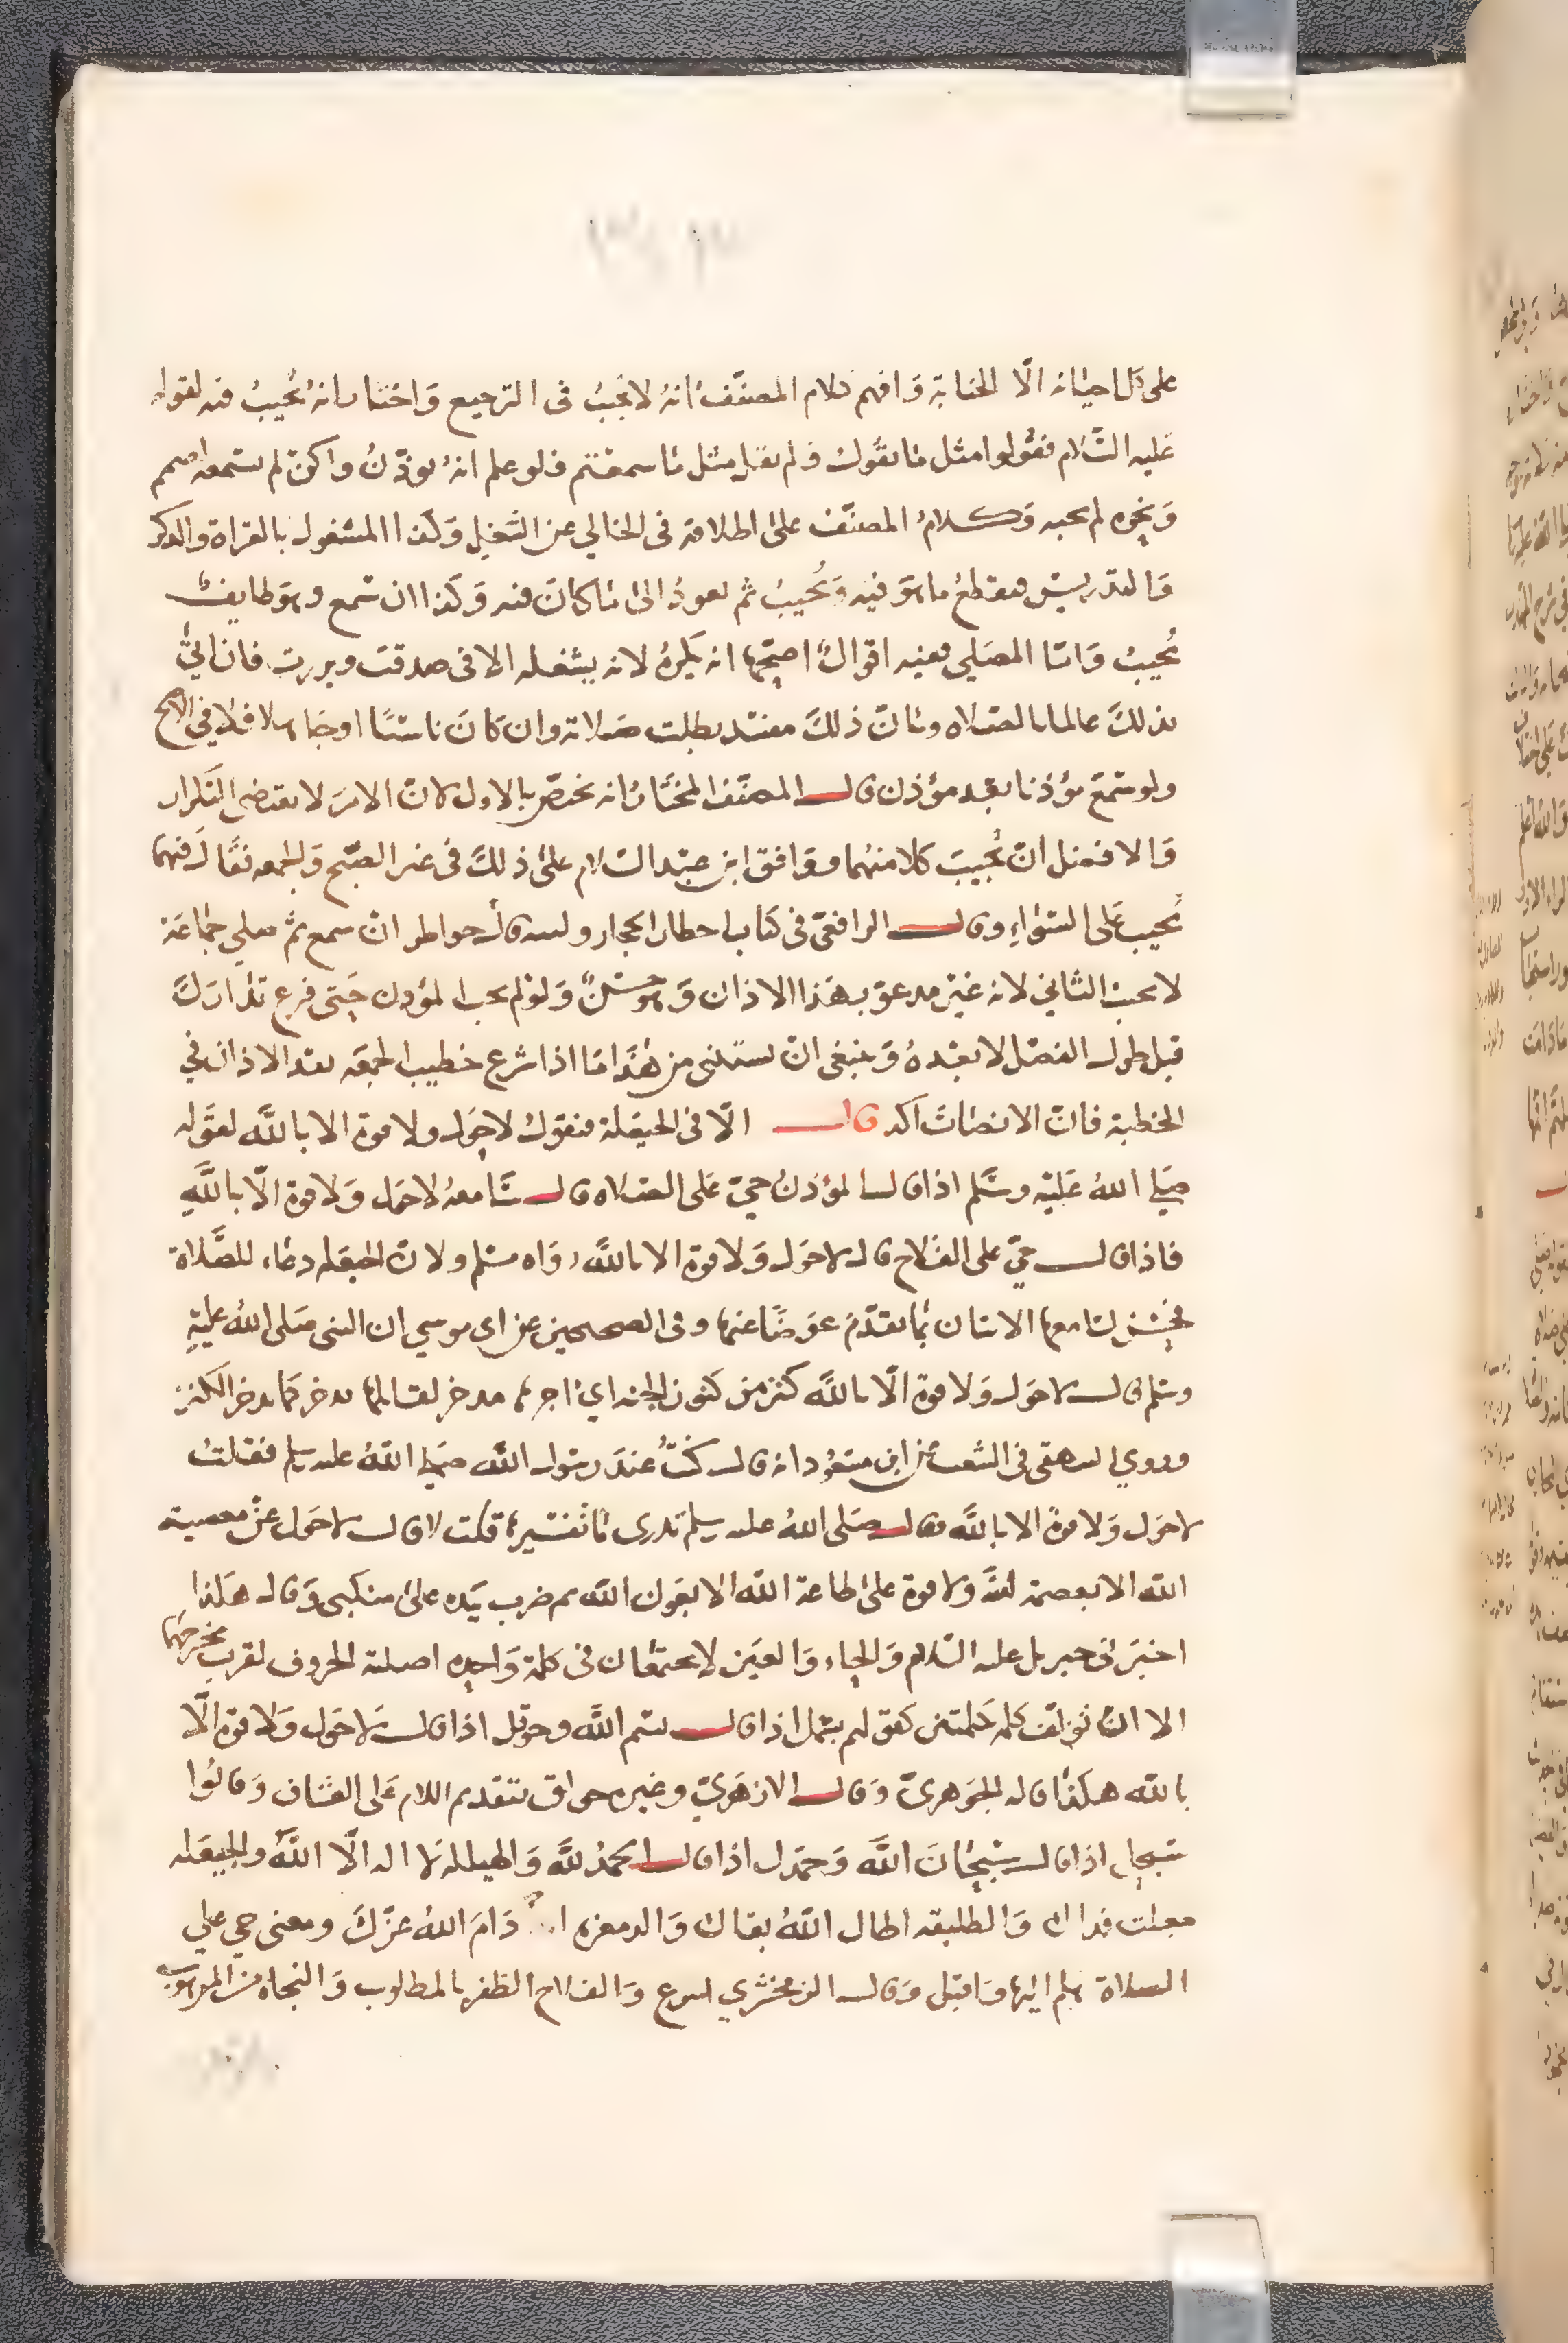 على كل احيانه الا الجنابة وافهم كلام المصنف انه لا يجيب في الترجيع واختار انه يجيب فيه لقوله
عليه السلام فقولوا مثل ما يقول ولم يقل مثل ما سمعتم فلو علم انه يوذن ولكن لم يسمعه لصمم
ونحوه لم يجبه وكلام المصنف على اطلاقه في الخالي عن الشغل وكذا المشغول بالقراة والذكر
والتدريس فيقطع ما هو فيه ويجيب ثم يعود الى ما كان فيه وكذا ان سمع وهو طايف
يجيب واما المصلي ففيه اقوال اصحها انه يكره لانه يشغله الا في صدقت وبررت فان اتى
بذلك عالما بالصلاه وبان ذلك مفسد بطلت صلاته وان كان ناسيا او جاهلا فلا في الاصح
ولو سمع مؤذنا بعد مؤذن قال المصنف المختار انه يختص بالاول لان الامر لا يقتضي التكرار
والافضل ان يجيب كلا منهما ووافق ابن عبد السلام على ذلك في غير الصبح والجمعه فقال فيهما
يجيب على السواء وقال الرافعي في كتاب اخطار الحجاز وليه قال خواطر ان سمع ثم صلى جماعة
لا يجيب الثاني لانه غير مدعو بهذا الاذان وهو حسن ولو لم يجب المؤذن حتى فرغ تدارك
قبل طول الفصل لا بعده وينبغي ان يستثنى من هذا ما اذا شرع خطيب الجمعه بعد الاذان في
الخطبة فان الانصات آكد قال الا في الحيعلة فيقول لا حول ولا قوة الا بالله لقوله
صلى الله عليه وسلم اذا قال المؤذن حي على الصلاه قال سامعه لا حول ولا قوة الا بالله
فاذا قال حي على الفلاح قال لا حول ولا قوة الا بالله رواه مسلم ولان الحيعله دعاء للصلاة
فحسن لسامعها الاتيان بما تقدم عوضا عنها وفي الصحيحين عن ابي موسي ان النبي صلى الله عليه
وسلم قال لا حول ولا قوة الا بالله كنز من كنوز الجنه اي اجرها مدخر لقايلها يدخر كما يدخر الكنز
وروي البيهقي في الشعب عن ابن مسعود انه قال كنت عند رسول الله صلى الله عليه وسلم فقلت
لا حول ولا قوة الا بالله فقال صلى الله عليه وسلم تدري ما تفسيرها قلت لا قال لا حول عن معصية
الله الا بعصمة الله ولا قوة على طاعة الله الا بعون الله ثم ضرب بيده على منكبي وقال هكذا
اخبرني جبريل عليه السلام والحاء والعين لا يجتمعان في كلمة واحده اصلية الحروف لقرب مخرجهما
الا ان تؤلف كلمه من كلمتين كقولهم بسمل اذا قال بسم الله وحوقل اذا قال لا حول ولا قوة الا
بالله هكذا قاله الجوهري وقال الازهري وغيره حولق بتقديم اللام على القاف وقالوا
سبحل اذا قال سبحان الله وحمدل اذا قال الحمد لله والهيلله لا اله الا الله والجيعله
جعلت فداك والطلبقه اطال الله بقاك والدمعزه ادام الله عزك ومعنى حي على
الصلاة هلم اليها واقبل وقال الزمخشري اسرع والفلاح الظفر بالمطلوب والنجاه من المرهوب